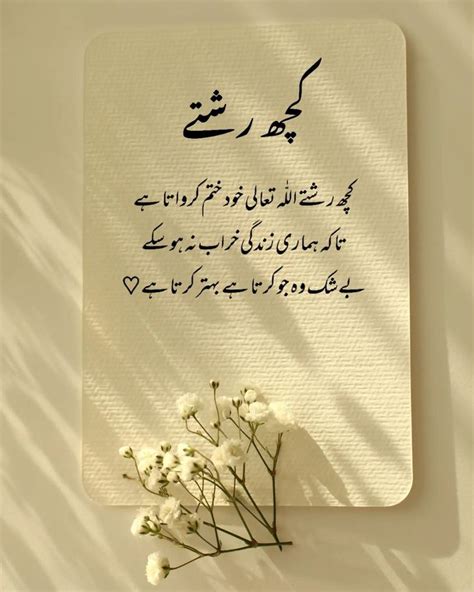 کچھ رشتے
کچھ رشتے اللہ تعالی خود ختم کرواتا ہے
تاکہ ہماری زندگی خراب نہ ہو سکے
بے شک وہ جو کرتا ہے بہتر کرتا ہے ♡